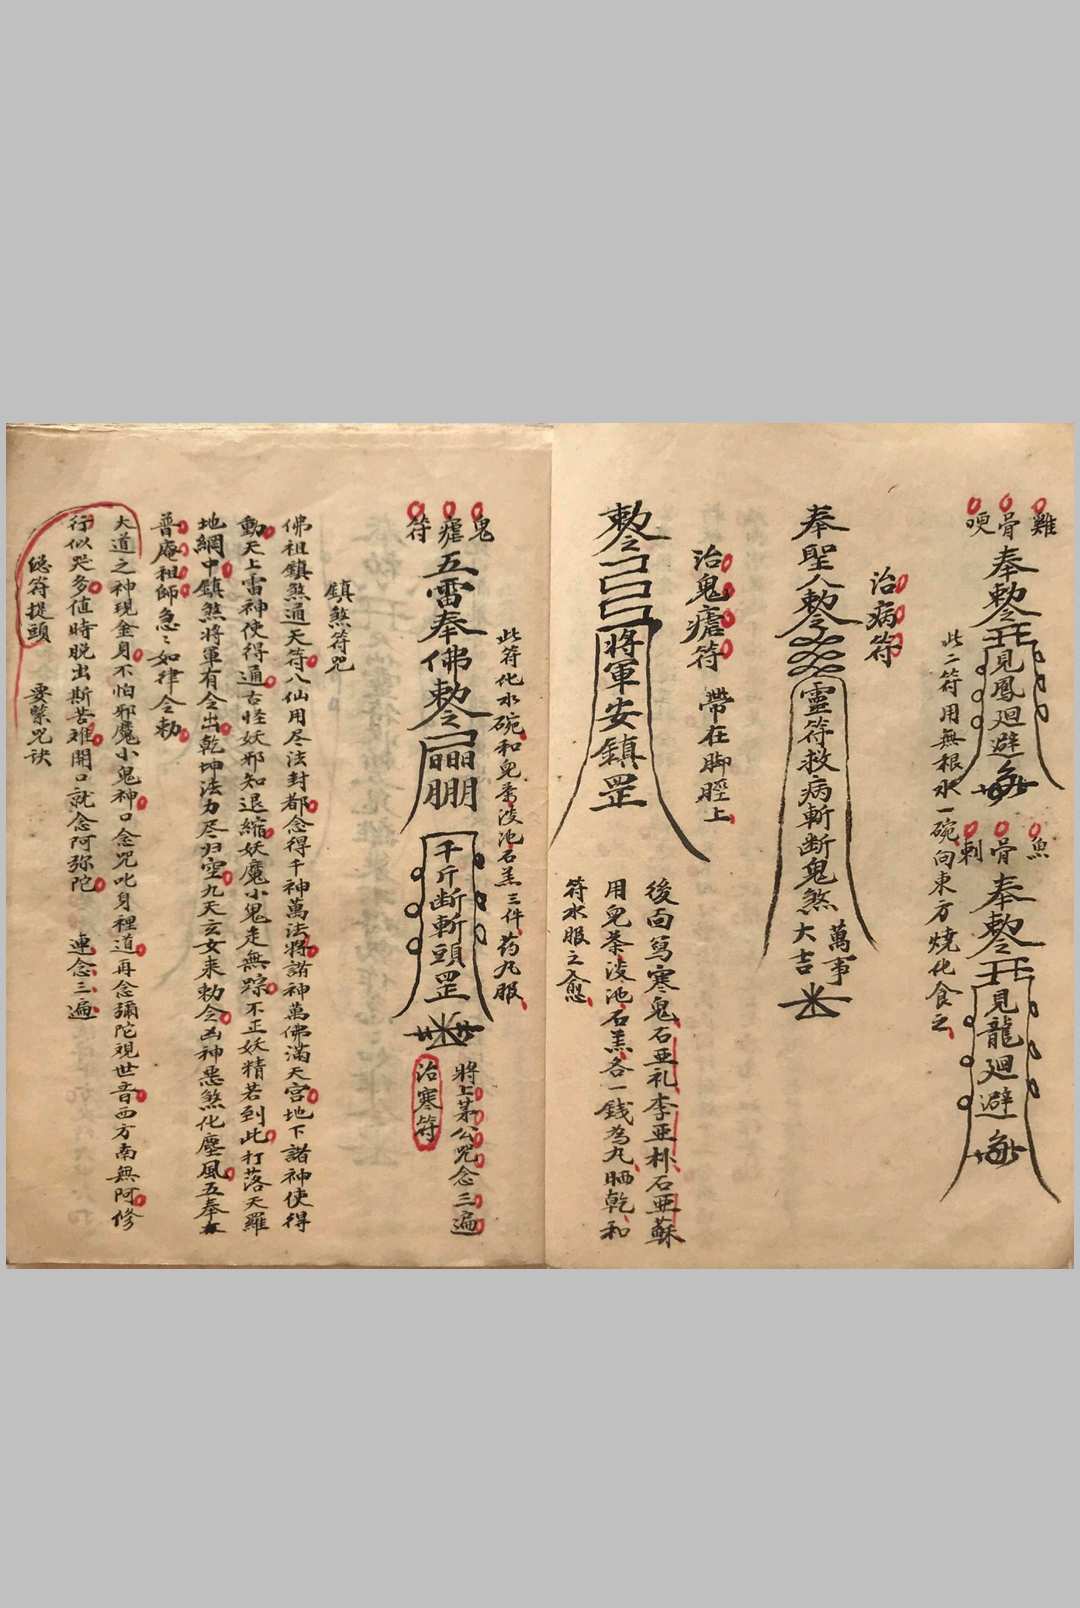 雞骨哽
奉勅令見鳳廻避
魚骨刺
奉勅令見龍廻避
此二符用無根水一碗向東方燒化食之
治病符
奉聖人勅令靈符救病斬断鬼煞
萬事大吉
治鬼瘧符 帶在脚脛上
勅令將軍安鎮罡
後面篤寒鬼石亜礼李亜朴石亜蘇
用皃茶淩池石羔各一錢為丸晒乾和
符水服之愈
此符化水碗和皃茶淩池石羔三件药丸服
鬼瘧符
五雷奉佛勅令
千斤断斬頭罡
將上茅公咒念三遍
治寒符
鎮煞符咒
佛祖鎮煞通天符八仙用尽法封都念得千神萬法將諸神萬佛滿天宮地下諸神使得
動天上雷神使得通古怪妖邪知退縮妖魔小鬼走無踪不正妖精若到此打落天羅
地網中鎮煞將軍有令出乾坤法力尽归空九天玄女来勅令凶神悪煞化塵風五奉
普庵祖師急〻如律令勅
大道之神現金身不怕邪魔小鬼神口念咒叱身裡道再念彌陀視世音西方南無阿修
行似哭多值時脱出斯苦难開口就念阿弥陀 連念三遍
總符提頭 要緊咒诀